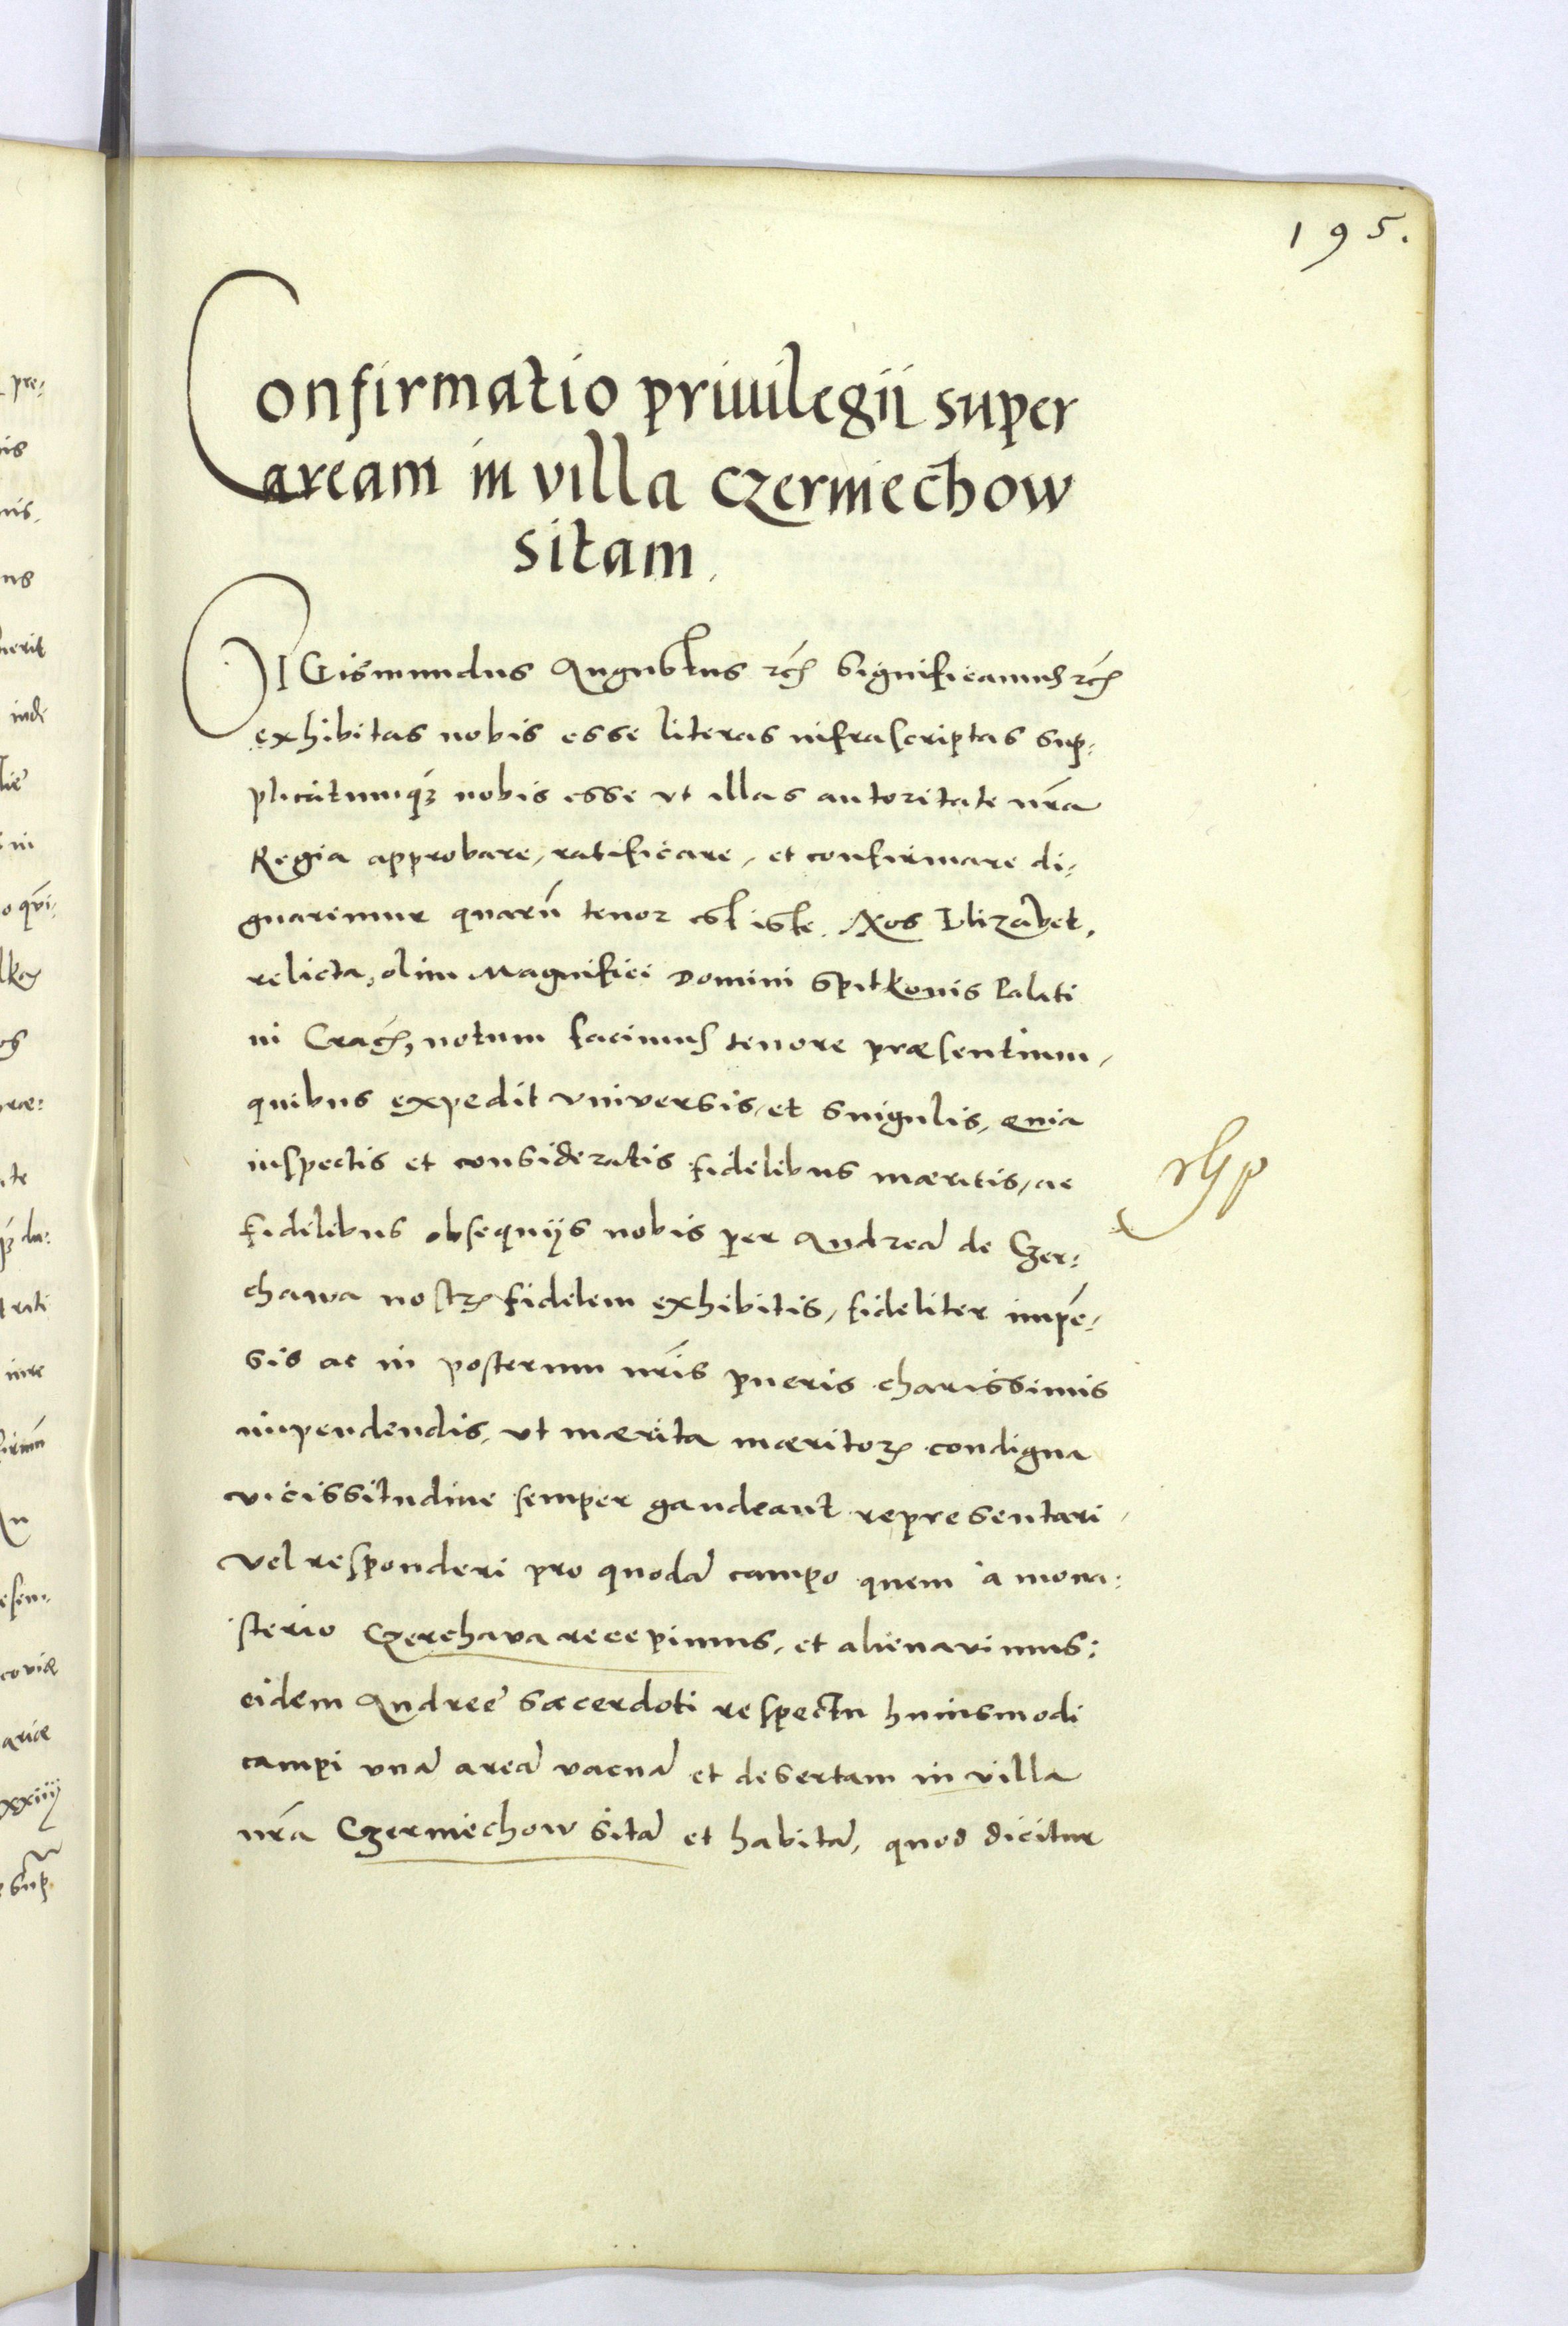 195.
Confirmatio priuilegii super
aream in villa Czerniechow
sitam.
SIGismundus Augustus etc̃ Significamus etc̃
exhibitas nobis esse literas infrascriptas sup-
plicatumq́ꝫ nobis esse vt illas autoritate nr̃a
Regia approbare, ratificare, et confirmare di-
gnaremur quarũ tenor est iste. Nos Elizabet,
relicta, olim Magnifici Domini Spitkonis Palati
ni Crac̃, notum facimus tenore præsentium,
quibus expedit vniversis, et singulis, Quia
inspectis et consideratis fidelibus mæritis, ac
fidelibus obsequijs nobis per Andreã de Czer-
chawa nostrꝫ fidelem exhibitis, fideliter impẽ-
sis ac in posterum nr̃is pueris charissimis
impendendis, vt mærita mæritoꝝ condigna
vicissitudine semper gaudeant representari,
vel responderi pro quodã campo quem à mona-
sterio Czerchava recepimus, et alienavimus:
eidem Andreę sacerdoti respectu huiusmodi
campi vnã areã vacuã et desertam in villa
nr̃a Czerniechow sitã et habitã, quod dicitur